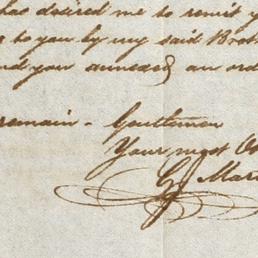 has desired me to remit y
to you by my said Broth
nd you annexed an ord
remain - Gentlemen
Your most Ob
G Mar